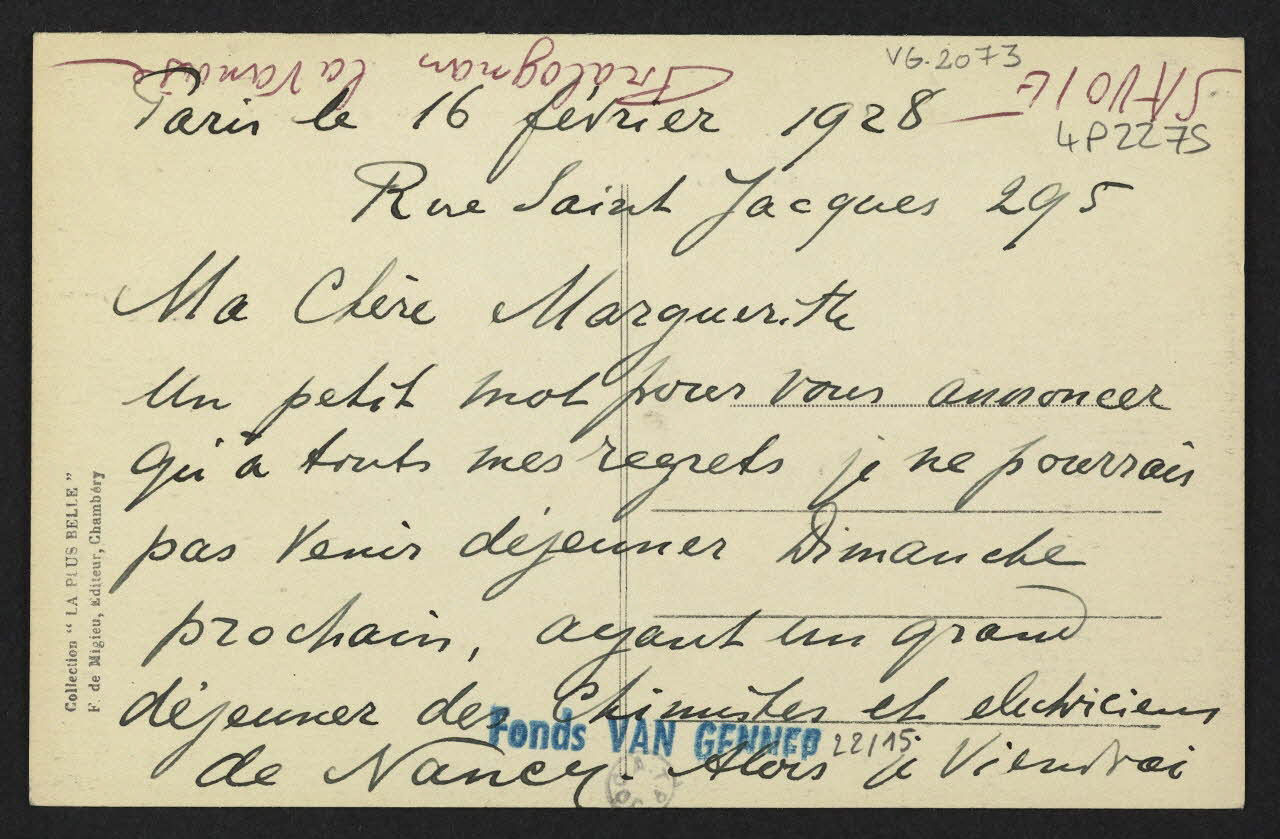 Pralognan la Vanoise
SAVOIE
VG.2073
4P2275
Paris le 16 février 1928
Rue Saint Jacques 295
Ma Chère Marguerite
Un petit mot pour vous annoncer
qu'à touts mes regrets je ne pourrais
pas venir déjeuner Dimanche
prochain, ayant un grand
déjeuner des Chimistes et electriciens
de Nancy. Alors je Viendrai
Fonds VAN GENNEP
22/15
Collection “ LA PLUS BELLE ”
F. de Migieu, Editeur, Chambéry